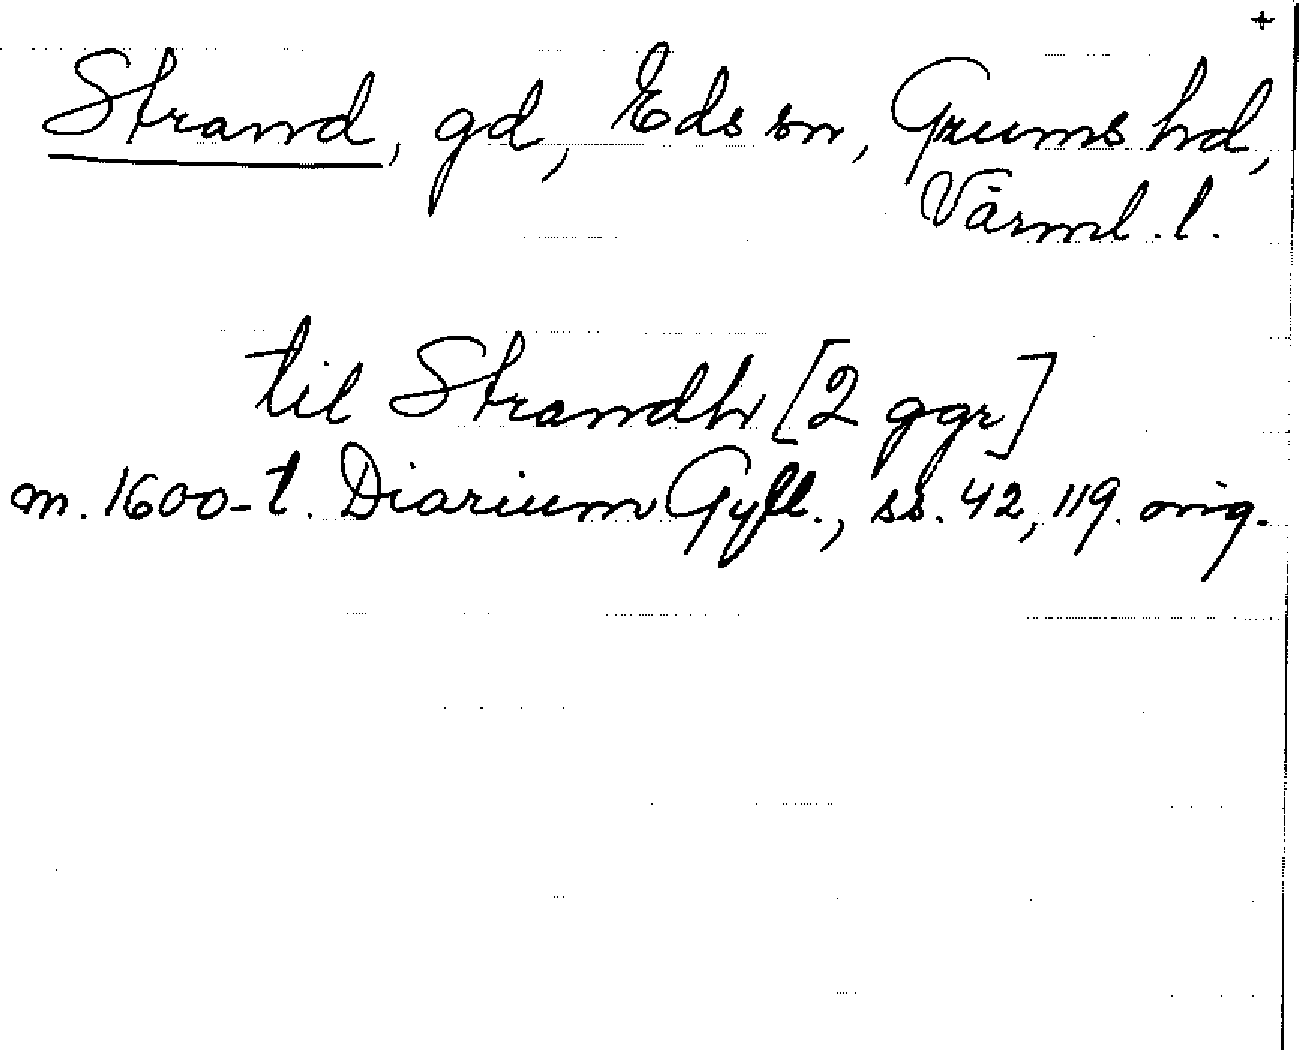 +
Strand, gd, Eds sn, Grums hd,
Värml. l.
til Strandh [2 ggr]
m. 1600-t. Diarium Gyll., ss. 42, 119. orig.